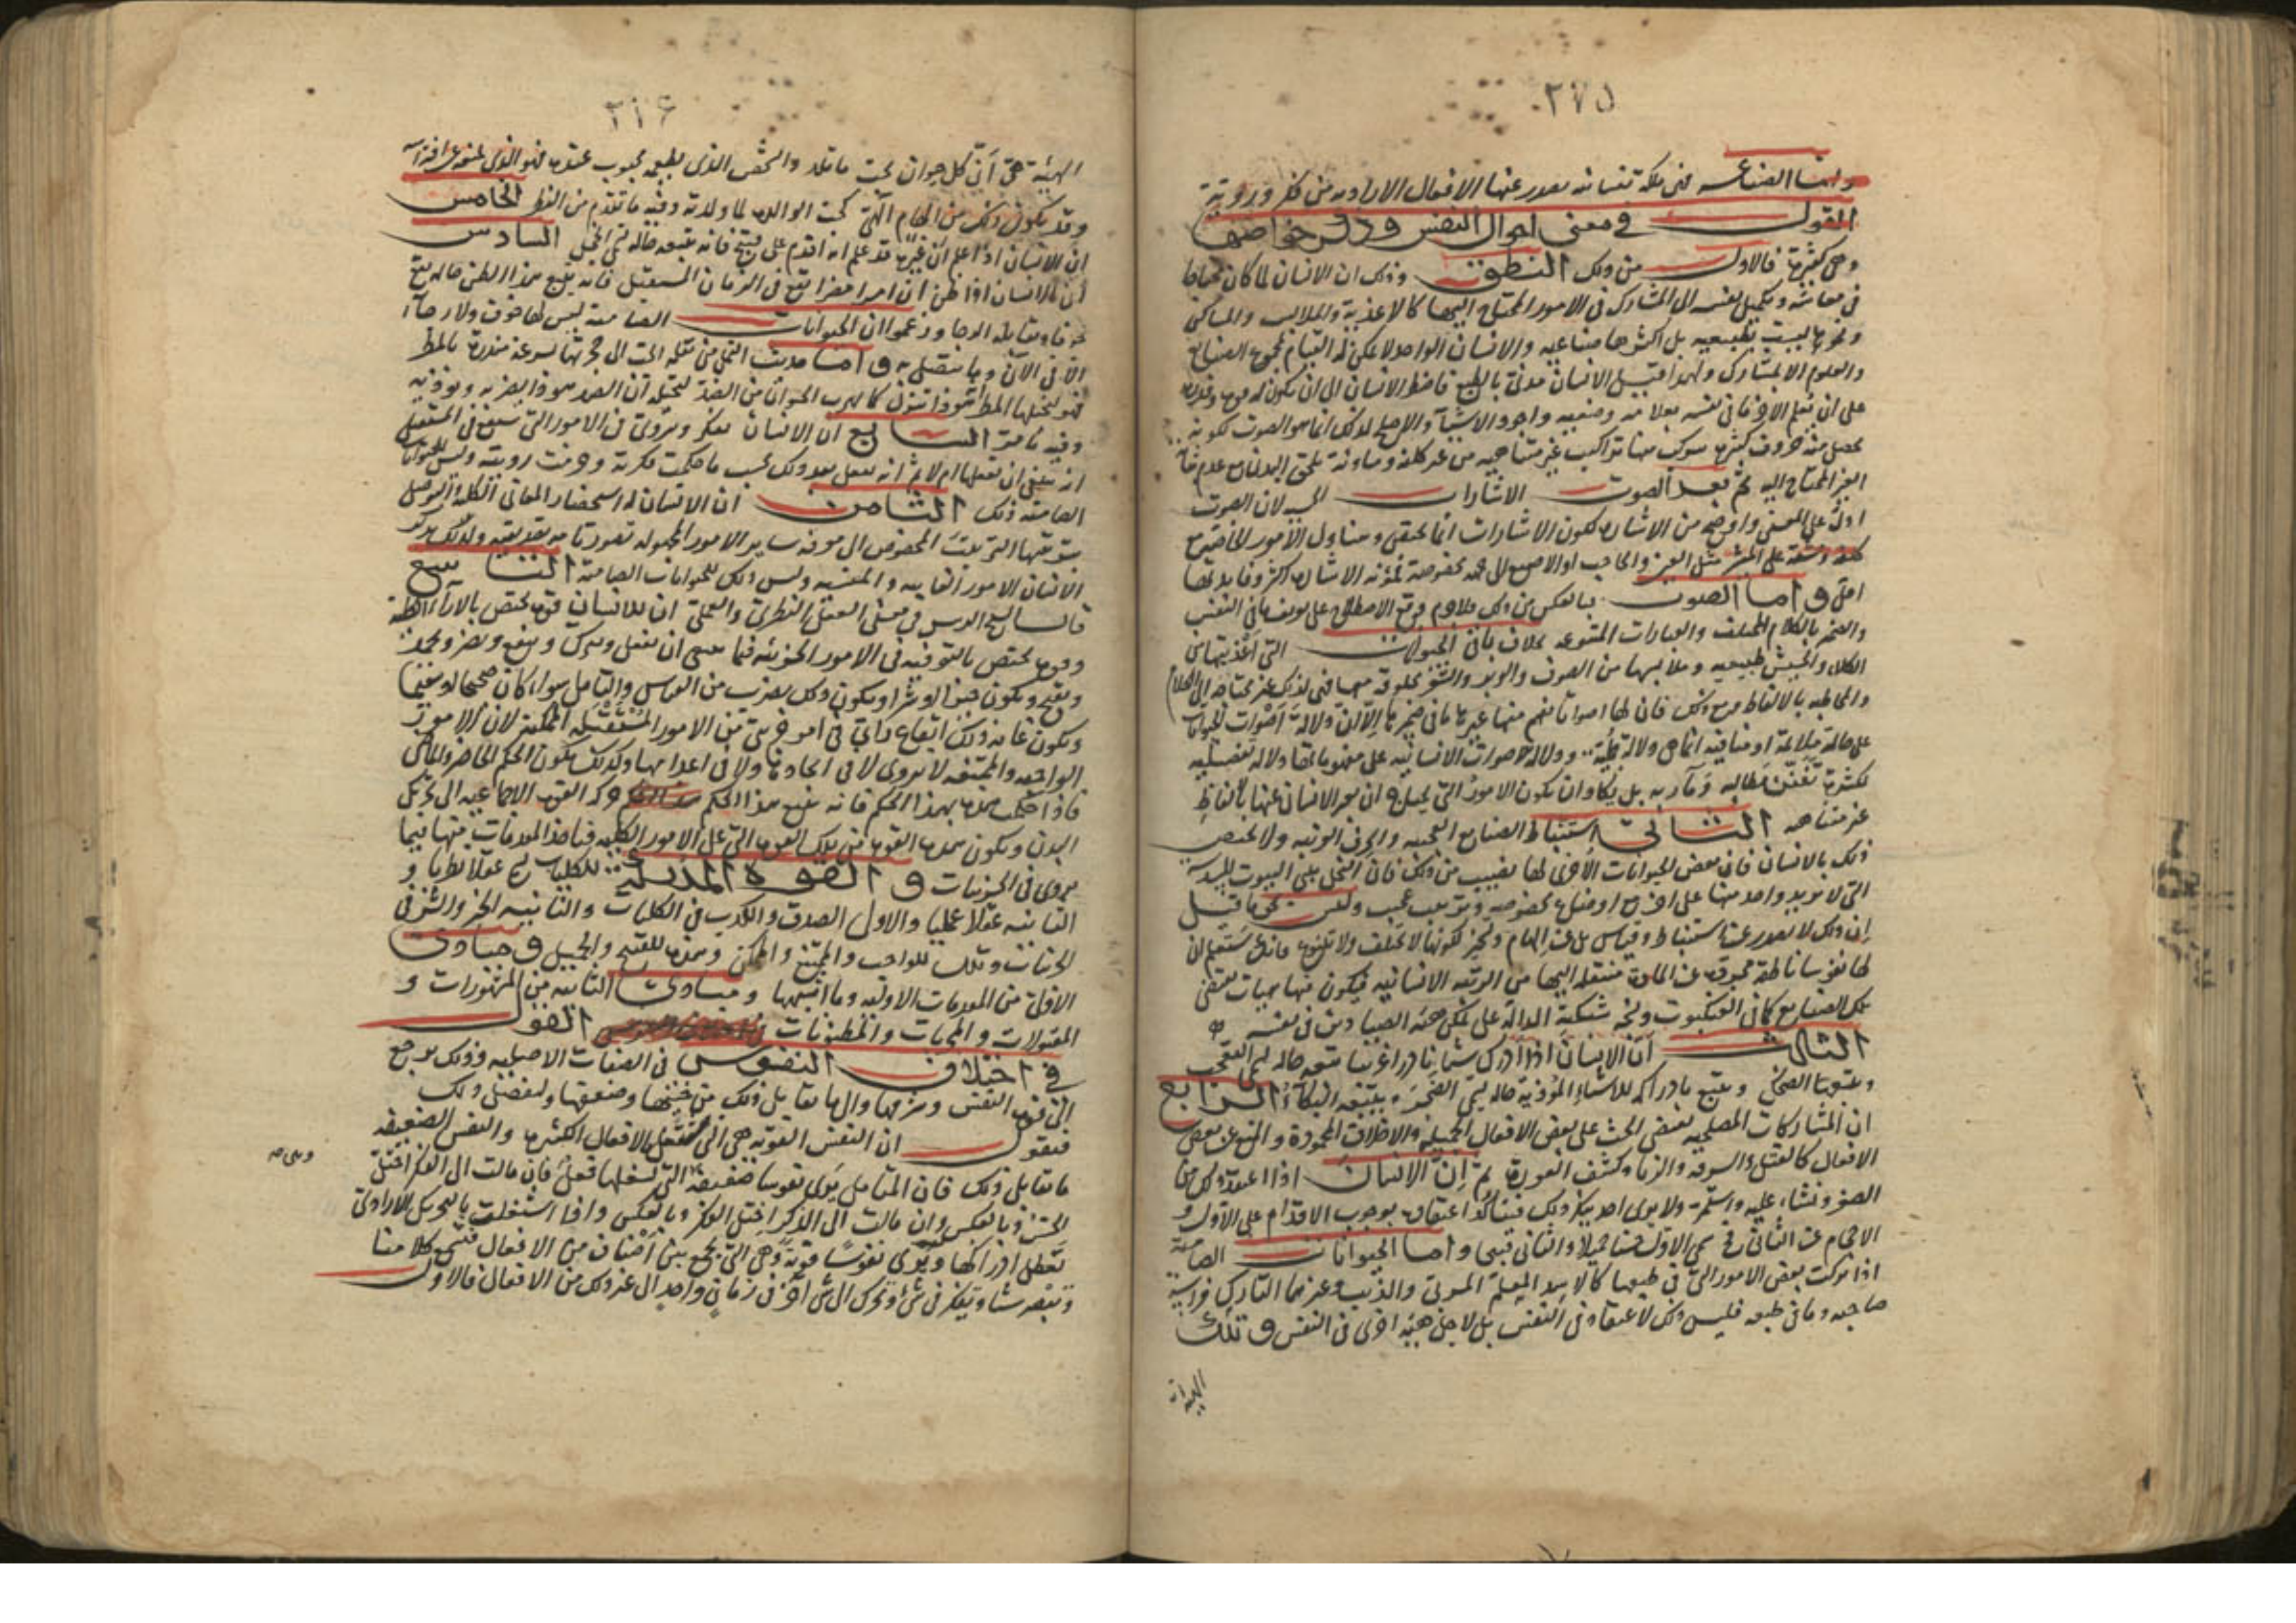 ٢٧٥
واما الصناعة فهي ملكة نفسانية يصدر عنها الافعال الارادية من فكر وروية
القول في معنى احوال النفس وذكر خواصها
وهي كثيرة فالاول من ذلك النطق وذلك ان الانسان لما كان محتاجا
في معاشه وتكميل نفسه الى المشارك في الامور المحتاج اليها كالاغذية والملابس والمساكن
ونحوها ليست بطبيعية بل اكثرها صناعية والانسان الواحد لا يمكن له القيام بمجموع الصنايع
والعلوم الا بمشارك ولهذا قيل الانسان مدني بالطبع فاضطر الانسان الى ان يكون له قوة وقدرة
على ان يعلم الاخر ما في نفسه بعلامة وضعية واجود الاشياء والاصلح لذلك انما هو الصوت لكونه
يحصل منه حروف كثيرة يتركب منها تراكيب غير متناهية من غير كلفة ومؤنة تلحق البدن مع عدم
الغير المحتاج اليه ثم بعد الصوت الاشارات الحسية لان الصوت
ادل على المعنى واوضح من الاشارة لكون الاشارات انما تحقق ومتناول الامور الحاضرة مع
كلفة ومشقة على المشير مثل العين والحاجب او الاصبع الى جهة مخصوصة فمؤنة الاشارة اكثر وفايدتها
اقل واما الصوت فبالعكس من ذلك فلا جرم وقع الاصطلاح على تعريف ما في النفس
والضمير بالكلام المختلف والعبارات المتنوعة بخلاف باقي الحيوانات التي اغذيتها من
الكلاء والحشيش طبيعية وملابسها من الصوف والوبر والشعر مخلوقة معها فهي لذلك غير محتاجة الى الكلام
والمخاطبة بالالفاظ ومع ذلك فان لها اصواتا تفهم منها غيرها ما في ضميرها الا ان دلالة اصوات الحيوانات
على حالة ملائمة او منافية انما هي دلالة جملية ودلالة الاصوات الانسانية على مفهوماتها دلالة تفصيلية
لكثرة تفنن مطالبه ومآربه بل يكاد ان يكون الامور التي يحتاج ان يعبر الانسان عنها بالفاظ
غير متناهية الثاني استنباط الصنايع العجيبة والحرف الغريبة ولا يختص
ذلك بالانسان فان بعض الحيوانات الاخرى لها نصيب من ذلك فان النحل يبني البيوت المسدسة
التي لا يزيد واحد منها على اخر مع اوضاع مخصوصة وترتيب عجيب وليس نحو ما قيل
ان ذلك لا يصدر عن استنباط وقياس بل عن الهام وتسخير لكونها لا تختلف ولا تتنوع
لها نفوسا ناطقة مجردة عن المادة منتقلة اليها من الرتبة الانسانية فيكون منها
تلك الصنايع كما في العنكبوت ونحوه شبكته الدالة على تمكن هيئة الصيادين في نفسه
الثالث ان الانسان اذا ادرك شيئا نادرا غريبا يتبعه حالة تسمى التعجب
ويتبعها الضحك ويتبع بادراكه للاشياء المؤذية حالة تسمى الضجر ويتبعه البكاء الرابع
ان المشاركات المصلحية تقتضي الحث على بعض الافعال الجميلة والاخلاق المحمودة والمنع عن بعض
الافعال كالقتل والسرقة والزنا وكشف العورة ثم ان الانسان اذا اعتقد ذلك من
الصغر ونشاء عليه واستمر ولا يرى احد ينكر ذلك فيتاكد اعتقاده بوجوب الاقدام على الاول و
الاحجام عن الثاني فيسمى الاول حسنا جميلا والثاني قبيحا واما الحيوانات الصامتة
اذا تركت بعض الامور التي في طبعها كالاسد المعلم المربى والذيب وغيرهما التارك فراسة
صاحبه وما في طبعه فليس ذلك لاعتقاد في النفس بل لاجل هيئة اخرى في النفس وتلك
الهيئة ان
٢١٤
الهيئة هي ان كل حيوان يحب ما يلد والشخص الذي يطعمه محبوب عنده فهو الذي يمنعه عن افتراسه
وقد يكون ذلك من الهام الهي كحب الوالدة لما ولدته وفيه ما تقدم من النظر الخامس
ان الانسان اذا علم ان غيره قد علم انه اقدم على قبيح فانه يتبعه حالة تسمى الخجل السادس
ان الانسان اذا ظن ان امرا مضرا يقع في الزمان المستقبل فانه يتبع هذا الظن حالة تسمى
خوفا ويقابله الرجا وزعموا ان الحيوانات الصامتة ليس لها خوف ولا رجاء
الا في الان وما يتصل به واما حديث النمل من نقله الحب الى جحرتها بسرعة منذرة بالمطر
فهو لتخيلها المطر انه هو ذا ينزل كما يهرب الحيوان من الضد لتخيله ان الضد هو ذا يضربه ويؤذيه
وفيه ما مر السابع ان الانسان يفكر ويروي في الامور التي ستقع في المستقبل
انه ينبغي ان يفعلها ام لا ثم انه يفعل بعد ذلك بحسب ما حكمت فكرته وجرمت رويته وليس للحيوانات
الصامتة ذلك الثامن ان الانسان له استحضار المعاني الكلية والتوصل
بتوسطها الترتيب المخصوص الى معرفة ساير الامور المجهولة تصورية او تصديقية ولذلك يدرك
الانسان الامور الغايبة والمغيبة وليس ذلك للحيوانات الصامتة التاسع
قال الشيخ الرئيس في معنى العقل النظري والعملي ان للانسان قوة تختص بالاراء الكلية
وقوة تختص بالتروية في الامور الجزئية فيما ينبغي ان يفعل ويترك وينفع ويضر ويحمد
ويقبح ويكون خيرا او شرا ويكون ذلك بضرب من القياس والتامل سواء كان صحيحا او سقيما
ويكون غاية ذلك ايقاع راي في امر جزئي من الامور المستقبلة الممكنة لان الامور
الواجبة والممتنعة لا يروى لا في ايجادها ولا في اعدامها وكذلك يكون الحكم الحاضر والماضي
فاذا حكمت هذه بهذا الحكم فانه يتبع هذا الحكم حركة القوة الاجماعية الى تحريك
البدن ويكون هذه القوة من تلك القوة التي على الامور الكلية فياخذ المقدمات منها فيما
يروى في الجزئيات والقوة المدركة للكليات تسمى عقلا نظريا و
الثانية عقلا عمليا والاول الصدق والكذب في الكليات والثانية الخير والشر في
الجزئيات وتلك للواجب والممتنع والممكن وهذه للقبيح والجميل ومبادي
الاولى من المقدمات الاولية وما اشبهها ومبادي الثانية من المشهورات و
المقبولات والتجربات والمظنونات القول
في اختلاف النفوس في الصفات الاصلية وذلك يرجع
الى قوة النفس وشرفها والى ما يقابل ذلك من خستها وضعفها ولنفصل ذلك
فنقول ان النفس القوية هي التي تفعل الافعال الكثيرة والنفس الضعيفة
ما يقابل ذلك فان المتامل يرى نفوسا ضعيفة التي يشغلها فعل فان مالت الى الفكر اختل
الحس وبالعكس وان مالت الى الذكر اختل الفكر وبالعكس واذا اشتغلت بالتحريك الارادي
تعطل ادراكها ويرى نفوسا قوية وهي التي تجمع بين اصناف من الافعال فتسمع كلامنا
وتبصر شيئا وتفكر في شيء وتحرك الى شيء آخر في زمان واحد الى غير ذلك من الافعال فالاول